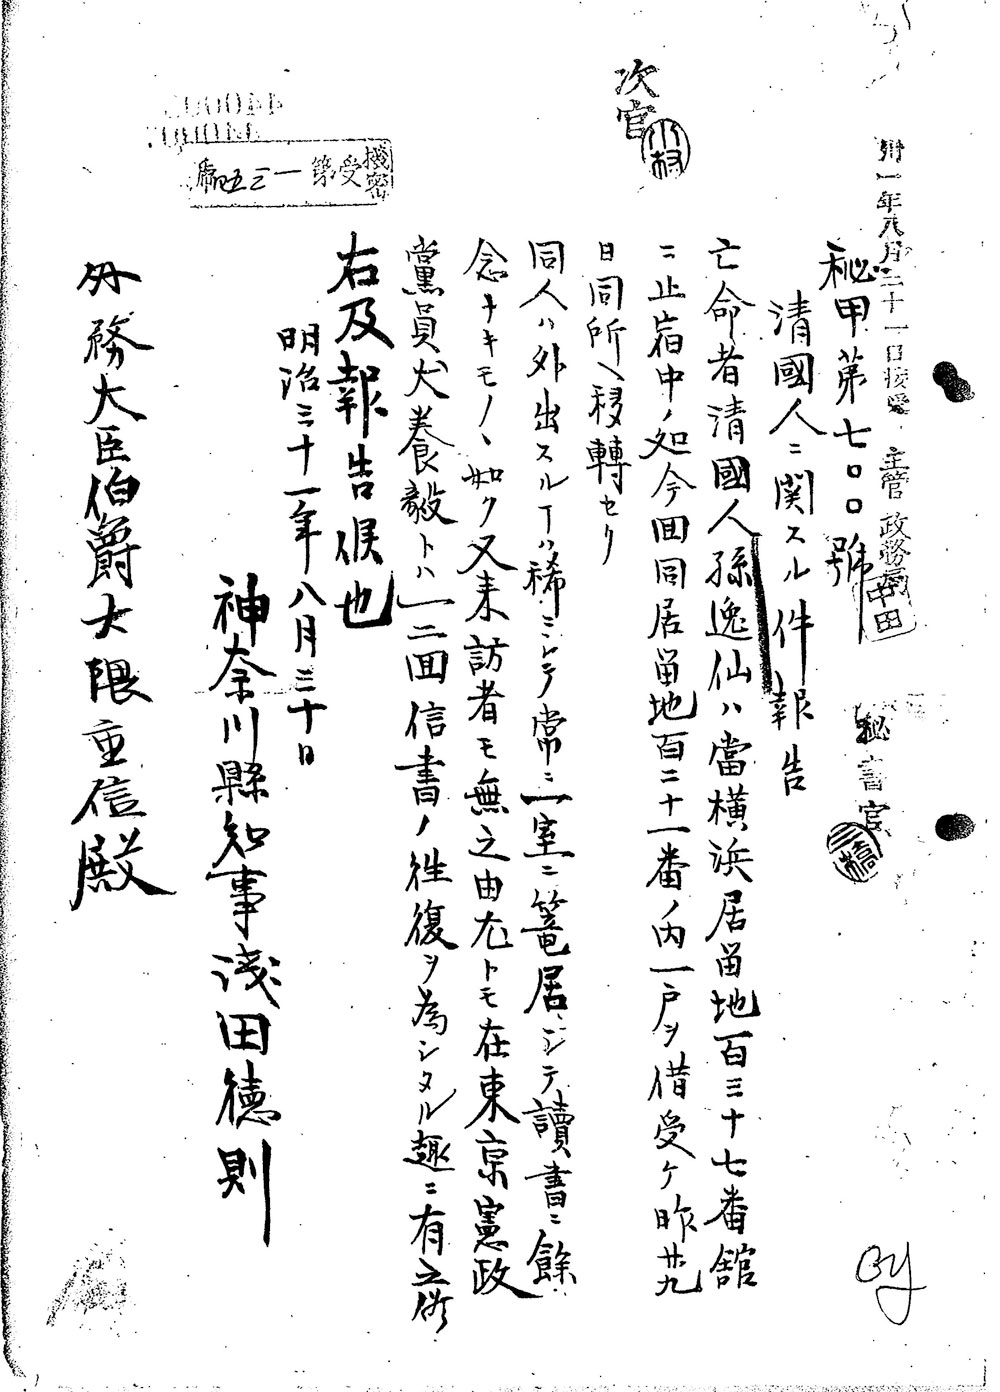 卅一年八月三十一日接受 主管 政務局
秘書官
三橋
中田
秘甲第七〇〇號
清國人ニ関スル件報告
亡命者清國人孫逸仙ハ當横浜居留地百三十七番舘
ニ止宿中ノ処今回同居留地百二十一番ノ内一戸ヲ借受ケ昨廿九
日同所ヘ移轉セリ
同人ハ外出スルヿハ稀ニシテ常ニ一室ニ篭居シテ讀書ニ餘
念ナキモノヽ如ク又来訪者モ無之由尤トモ在東京憲政
黨員犬養毅トハ一二回信書ノ徃復ヲ為シタル趣ニ有之候
右及報告候也
明治三十一年八月三十日
神奈川縣知事浅田徳則
外務大臣伯爵大隈重信殿
次官
小村
機密
受第一三五四號